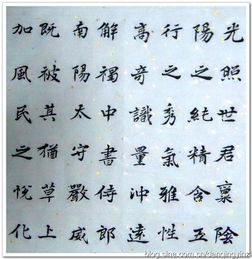 光照世君稟陰
陽之純精含五
行之秀氣雅性
高奇識量沖遠
解褐中書侍郎
南陽太守嚴威
既被其猶草上
加風民之悅化